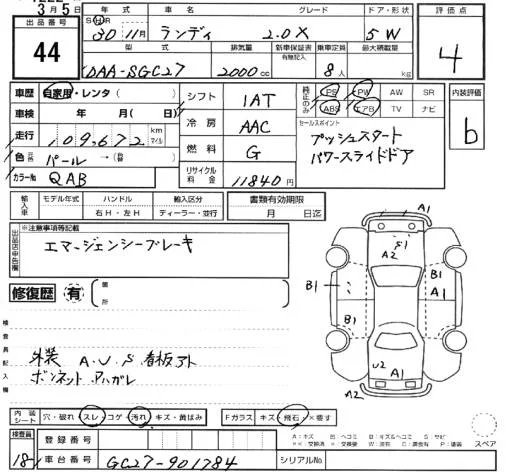 3月5日
出品番号
44
年式 車名 グレード ドア・形状
S・H・R
30年11月 ランディ 2.0X 5W
型式 排気量 新車保証書 有無記入 乗車定員 最大積載量
DAA-SGC27 2000cc 8人 kg
評価点
4
車歴 自家用・レンタ( )
車検 年 月( 日)
走行 109,672 km マイル
色 パール →( )
カラーNo QAB
シフト 1AT
冷房 AAC
燃料 G
リサイクル料金 11840円
純正のみ PS PW AW SR
ABS エアB TV ナビ
セールスポイント
プッシュスタート
パワースライドドア
内装評価
b
輸入車 モデル年式 ハンドル 輸入区分
右H・左H ディーラー・並行
書類有効期限
月 日迄
出品店申告欄 ※注意事項等記載
エマージェンシーブレーキ
修復歴 有 箇所
検査員記入欄
外装 A.U.S 看板アト
ボンネット ハガレ
A1
S1
A2
B1
B1
A1
B1
U2
A1
A2
内装シート 穴・破れ スレ コゲ・汚れ キズ・黄ばみ
Fガラス キズ・飛石・×要す
スペア
A:キズ U:ヘコミ B:キズ&ヘコミ S:サビ
検査員
18
登録番号
車台番号 GC27-901784
シリアルNo